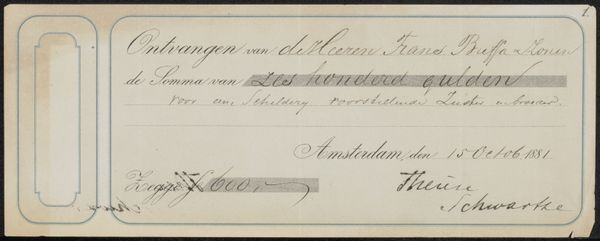 1.
Ontvangen van de Heeren Frans Buffa & Zonen
de Somma van zes honderd gulden
voor een Schildery voorstellende Zuster en broeder.
Amsterdam, den 15 Octob 1881
Zegge f 600,-
Therese
Schwartze